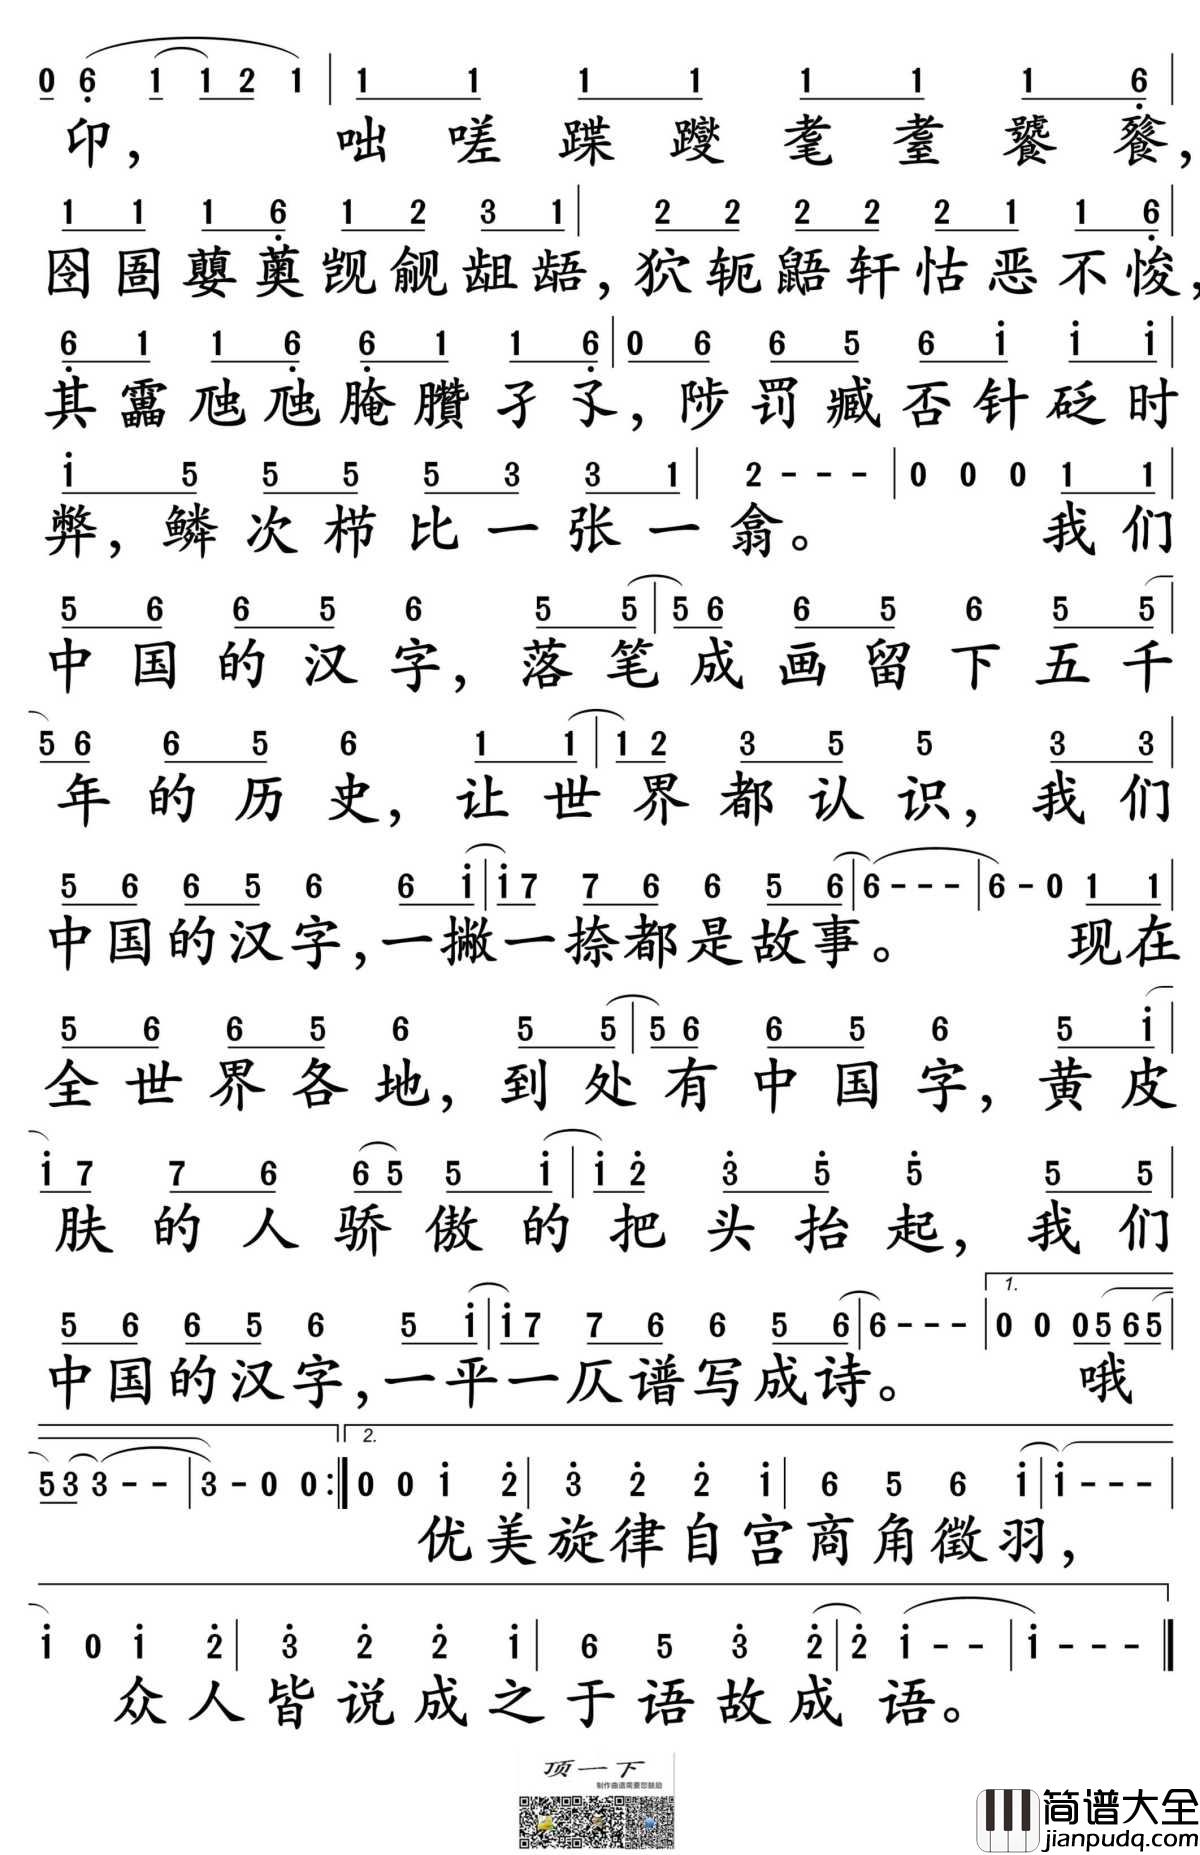 0 6 1 1 2 1 | 1 1 1 1 1 1 1 6 |
印，咄嗟蹀躞耄耋饕餮，
1 1 1 6 1 2 3 1 | 2 2 2 2 2 1 1 6 |
囹圄嬖奠觊觎龃龉，狖轭鼯轩怙恶不悛，
6 1 1 6 6 1 1 6 | 0 6 6 5 6 i i i |
其靁虺虺腌臜孑孓，陟罚臧否针砭时
i 5 5 5 5 3 3 1 | 2 - - - | 0 0 0 1 1 |
弊，鳞次栉比一张一翕。我们
5 6 6 5 6 5 5 | 5 6 6 5 6 5 5 |
中国的汉字，落笔成画留下五千
5 6 6 5 6 1 1 | 1 2 3 5 5 3 3 |
年的历史，让世界都认识，我们
5 6 6 5 6 6 i | i 7 7 6 6 5 6 | 6 - - - | 6 - 0 1 1 |
中国的汉字，一撇一捺都是故事。现在
5 6 6 5 6 5 5 | 5 6 6 5 6 5 i |
全世界各地，到处有中国字，黄皮
i 7 7 6 6 5 5 i | i 2 3 5 5 5 5 |
肤的人骄傲的把头抬起，我们
5 6 6 5 6 5 i | i 7 7 6 6 5 6 | 6 - - - | 1. 0 0 0 5 6 5 |
中国的汉字，一平一仄谱写成诗。哦
5 3 3 - - | 3 - 0 0 :| 2. 0 0 i 2 | 3 2 2 i | 6 5 6 i | i - - - |
优美旋律自宫商角徵羽，
i 0 i 2 | 3 2 2 i | 6 5 3 2 | 2 i - - | i - - - |
众人皆说成之于语故成语。
顶一下
制作曲谱需要您鼓励
简谱大全
jianpudq.com